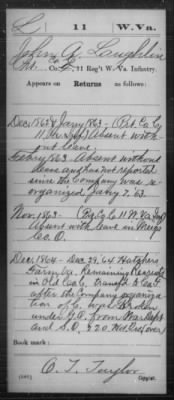 L | 11 | W. Va.
John A. Laughlin
Pvt., Co. G, 11 Reg't W. Va. Infantry.
Appears on
Returns as follows:
Dec. 1862 & Jany 1863 - (Pvt. Co. G
11. Va. Inf.) Absent with-
out leave.
Feby 1863. Absent without
leave and has not reported
since the Company was re-
organized Jany 2. 63.
Nov. 1863 -
Absent with leave in Meigs
Co. O.
Dec. 1864 - Dec 29, 64
Remaining Recruits
in Old Co. G, transfd to Co.
after the Company organiza-
tion of G was Broken
under G.O. from War Dept
and S.O. 220
Book mark:
C. T. Taylor
Copyist.